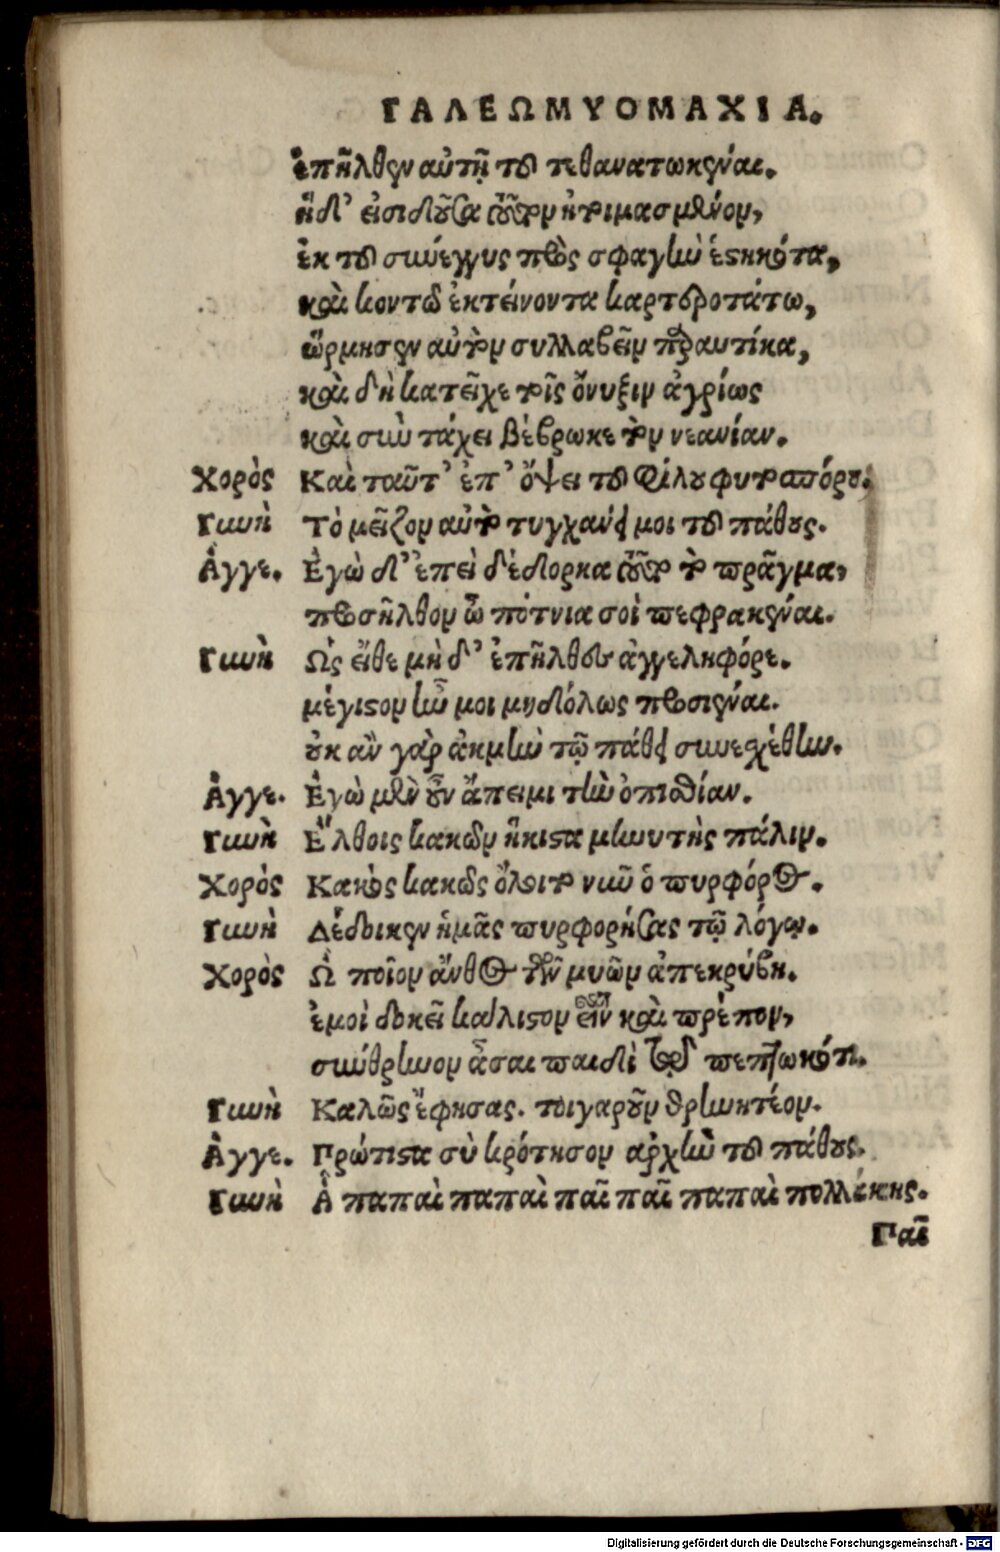 ΓΑΛΕΩΜΥΟΜΑΧΙΑ.
ἐπῆλθεν αὐτῇ τοῦ τεθανατωκέναι.
ἡ δ' εἰσιδοῦσα τοῦτον ἠτιμασμένον,
ἐκ τοῦ συνέγγυς πρὸς σφαγὴν ἑστηκότα,
καὶ κοντὸν ἐκτείνοντα καρτερωτάτως,
ὥρμησεν αὐτὸν συλλαβεῖν παραυτίκα,
καὶ δὴ κατεῖχε τοῖς ὄνυξιν ἀγρίως
καὶ σὺν τάχει βέβρωκε τὸν νεανίαν.
Χορὸς Καὶ ταῦτ' ἐπ' ὄψει τοῦ φίλου φυτοσπόρου.
Γυνὴ Τὸ μεῖζον αὐτὸ τυγχάνει μοι τοῦ πάθους.
Ἄγγε. Ἐγὼ δ' ἐπεὶ δέδορκα τοῦτο τὸ πρᾶγμα,
προσῆλθον ὦ πότνια σοὶ πεφρακέναι.
Γυνὴ Ὡς εἴθε μὴ δ' ἐπῆλθες ἀγγεληφόρε.
μέγιστον ἦν μοι μηδόλως προσιέναι.
οὐκ ἂν γὰρ ἀκμὴν τῷ πάθει συνεσχέθην.
Ἄγγε. Ἐγὼ μὲν οὖν ἄπειμι τὴν ὀπισθίαν.
Γυνὴ Ἔλθοις κακῶν ἥκιστα μηνυτὴς πάλιν.
Χορὸς Κακὸς κακῶς ὄλοιτο νῦν ὁ πυρφόρος.
Γυνὴ Δέδοικεν ἡμᾶς πυρφορήσας τῷ λόγῳ.
Χορὸς Ὢ ποῖον ἄνθος τῶν μυῶν ἀπεκρύβη.
ἐμοὶ δοκεῖ κάλλιστον εἶναι καὶ πρέπον,
σύνθρηνον ᾆσαι παιδὶ τῷδε πεπτωκότι.
Γυνὴ Καλῶς ἔφησας. τοιγαροῦν θρηνητέον.
Ἄγγε. Πρώτιστα σὺ κρότησον ἀρχὴν τοῦ πάθους.
Γυνὴ Ἆ παπαὶ παπαὶ παῖ παῖ παπαὶ πολλάκης.
Παῖ
Digitalisierung gefördert durch die Deutsche Forschungsgemeinschaft - DFG